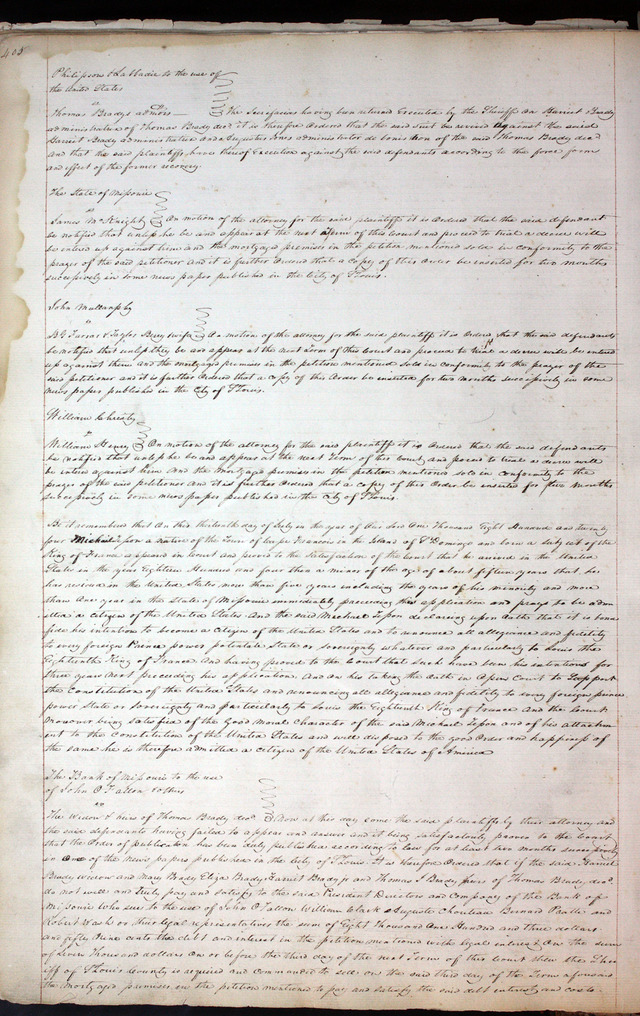 405
Philipsons & Labbadie to the use of
the United States
vs
Thomas Bradys admors The Scirefacias having been returned Executed by the Sheriff on Harriet Brady
administratrix of Thomas Brady decd it is therefore Ordered that the said suit be revived against the said
Harriet Brady administratrix and Augustus Jones administrator de bonis non of the said Thomas Brady decd
and that the said plaintiffs have thereof Execution against the said defendants according to the force form
and effect of the former recovery.
The State of Missouri
vs
James McKnight On motion of the attorney for the said plaintiffs it is Ordered that the said defendant
be notified that unless he be and appear at the next Term of this Court and proceed to trial a decree will
be entered up against him and the mortgaged premises in the petition mentioned sold in conformity to the
prayer of the said petitioner and it is further Ordered that a copy of this Order be inserted for two months
successively in some news paper published in the City of St Louis.
John Mullanphy
vs
B G Farrar & Taylor Berry wife On motion of the attorney for the said plaintiff it is Ordered that the said defendants
be notified that unless they be and appear at the next Term of this Court and proceed to trial a decree will be entered
up against them and the mortgaged premises in the petition mentioned sold in conformity to the prayer of the
said petitioner and it is further Ordered that a copy of this Order be inserted for two months successively in some
news paper published in the City of St Louis.
William Christy
vs
William Henry On motion of the attorney for the said plaintiff it is Ordered that the said defendants
be notified that unless he be and appear at the next Term of this Court and proceed to trial a decree will
be entered against him and the Mortgaged premises in the petition mentioned sold in conformity to the
prayer of the said petitioner and it is further Ordered that a copy of this Order be inserted for two months
successively in some news paper published in the City of St Louis.
Be it remembered that on this thirteenth day of July in the year of Our Lord One Thousand Eight Hundred and twenty
four Michael Tesson a native of the Town of Cape Francois in the Island of St Domingo and born a subject of the
King of France appeared in Court and proved to the satisfaction of the Court that he arrived in the United
States in the year Eighteen Hundred and four then a minor of the age of about fifteen years that he
has resided in the United States more than five years including the years of his minority and more
than One year in the State of Missouri immediately preceding this application and prays to be adm
itted a citizen of the United States and the said Michael Tesson declaring upon Oath that it is bona
fide his intention to become a citizen of the United States and to renounce all allegiance and fidelity
to every foreign Prince power potentate State or sovereignty whatever and particularly to Louis the
Eighteenth King of France and having proved to the Court that such have been his intentions for
three years next preceding his application. And on his taking the Oath in Open Court to Support
the Constitution of the United States and renouncing all allegiance and fidelity to every foreign prince
power State or Sovereignty and particularly to Louis the Eighteenth King of France and the Court
moreover being satisfied of the Good Moral Character of the said Michael Tesson and of his attachm
ent to the Constitution of the United States and well disposed to the good Order and happiness of
the same he is therefore admitted a citizen of the United States of America
The Bank of Missouri to the use
of John O'Fallon & others
vs
The Widow & heirs of Thomas Brady decd Now at this day come the said plaintiffs by their attorney and
the said defendants having failed to appear and answer and it being satisfactorily proven to the Court
that the Order of publication has been duly published according to law for at least two months successively
in One of the News papers published in the City of St Louis It is therefore Ordered that if the said Harriet
Brady widow and Mary Brady Eliza Brady Harriet Brady jr and Thomas Brady heirs of Thomas Brady decd.
do not well and truly pay and satisfy to the said President Directors and Company of the Bank of
Missouri who sue to the use of John O'Fallon William Clark Auguste Chouteau Bernard Pratte and
Robert Wash or their legal representatives the sum of Eight Thousand One Hundred and three dollars
and fifty Nine cents the debt and interest in the petition mentioned with legal interest on the sum
of Seven Thousand dollars on or before the third day of the next Term of this Court then the Sher
iff of St Louis County is required and commanded to sell on the said third day of the Term aforesaid
the mortgaged premises in the petition mentioned to pay and satisfy the said debt interest and costs.